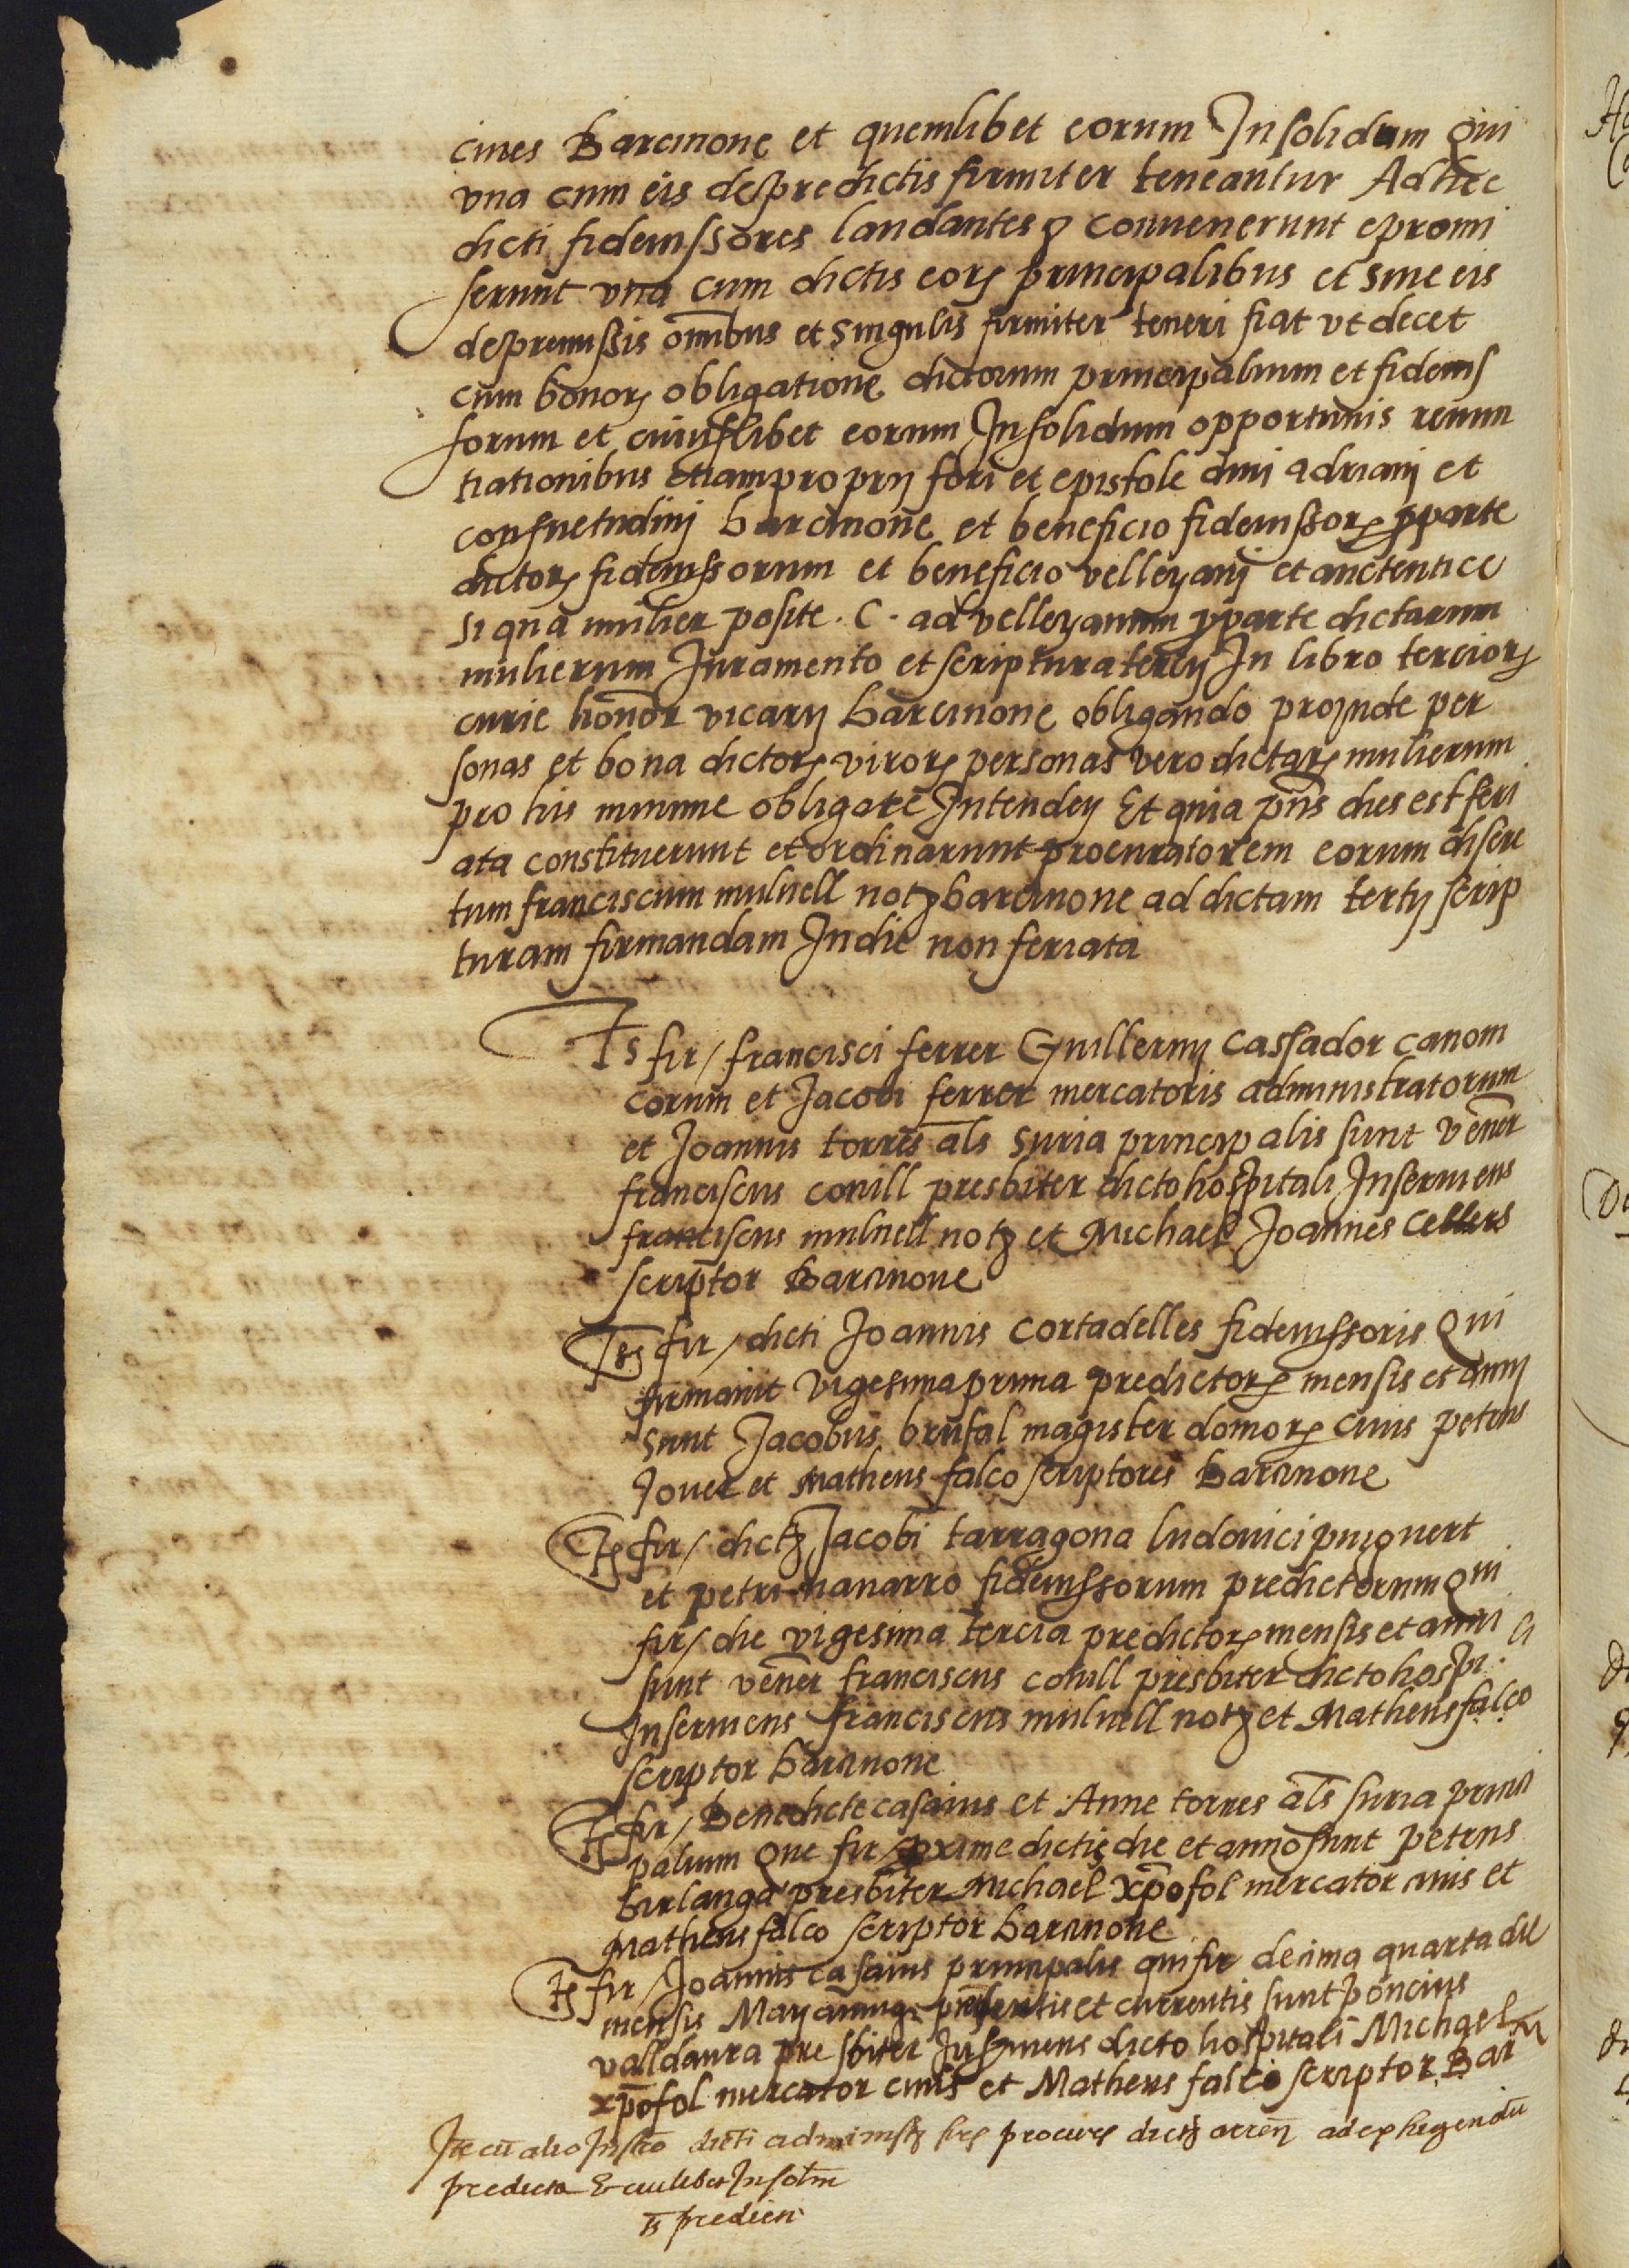 ciues Barcinone et quemlibet eorum Insolidum Qui
vna cum eis de predictis firmiter teneantur Ad hec
dicti fideiussores laudantes convenerunt e promi
serunt vna cum dictis eorꝝ principalibus et sine eis
de premissis omībus et singulis firmiter teneri fiat vt decet
cum bonorꝝ obligatione dictorum principalium et fideius
sorum et cuiuslibet eorum Insolidum opportunis renun
tiationibus etiam proprij fori et epistole diui adrianj et
consuetudinj barcinone et beneficio fideiussorꝝ pparte
dictorꝝ fideiussorum et beneficio velleyanj et auctentice
si qua mulier posite . C . ad velleyanum pparte dictarum
mulierum Juramento et scriptura tercij In libro terciorꝝ
curie honor vicarij barcinone obligando proinde per
sonas et bona dictorꝝ virorꝝ personas vero dictarꝝ mulierum
pro his minime obligare Intenden Et quia pñs dies est feri
ata constituerunt et ordinarunt procuratorem eorum discre
tum franciscum mulnell notꝫ barcinone ad dictam tertij scrip
turam firmandam In die non feriata
Ts fir / francisci ferrer Guillermj cassador canoni
corum et Jacobi ferrer mercatoris administratorum
et Joannis torres als suria principalis sunt vener
franciscus conill presbiter dicto hospitali Inseruiens
franciscus mulnell notꝫ et Michael Joannes cellers
scriptor Barcinone
Ts fir / dicti Joannis cortadelles fideiussoris Qui
firmauit vigesima prima predictorꝝ mensis et annj
sunt Jacobus brufal magister domorꝝ ciuis petrus
Jouer et Matheus falco scriptores Barcinone
Ts fir / dictꝫ Jacobi tarragona ludouici puiguert
et petri nauarro fideiussorum predictorum Qui
fir / die vigesima tercia predictorꝝ mensis et anni
sunt vener franciscus conill presbiter dicto hospi
Inseruiens franciscus mulnell notꝫ et Matheus falco
scriptor barcinone
Ts fir / Benedicte casaius et Anne torres als suria princi
palium Que fir / proxime dictis die et anno sunt petrus
birlanga presbiter Michael xp̄ofol mercator ciuis et
Matheus falco scriptor barcinone
Ts fir / Joannis casaius principalis qui fir decima quarta die
mensis Maij presentis et currentis sunt poncius
valldaura presbiter Inseruiens dicto hospitali Michael
xp̄ofol mercator ciuis et Matheus falco scriptor Bar
Ite cū alio Instro dicti procures dictꝫ ad exhigendū
predicta & cuilibet Insolm
Ts predicti